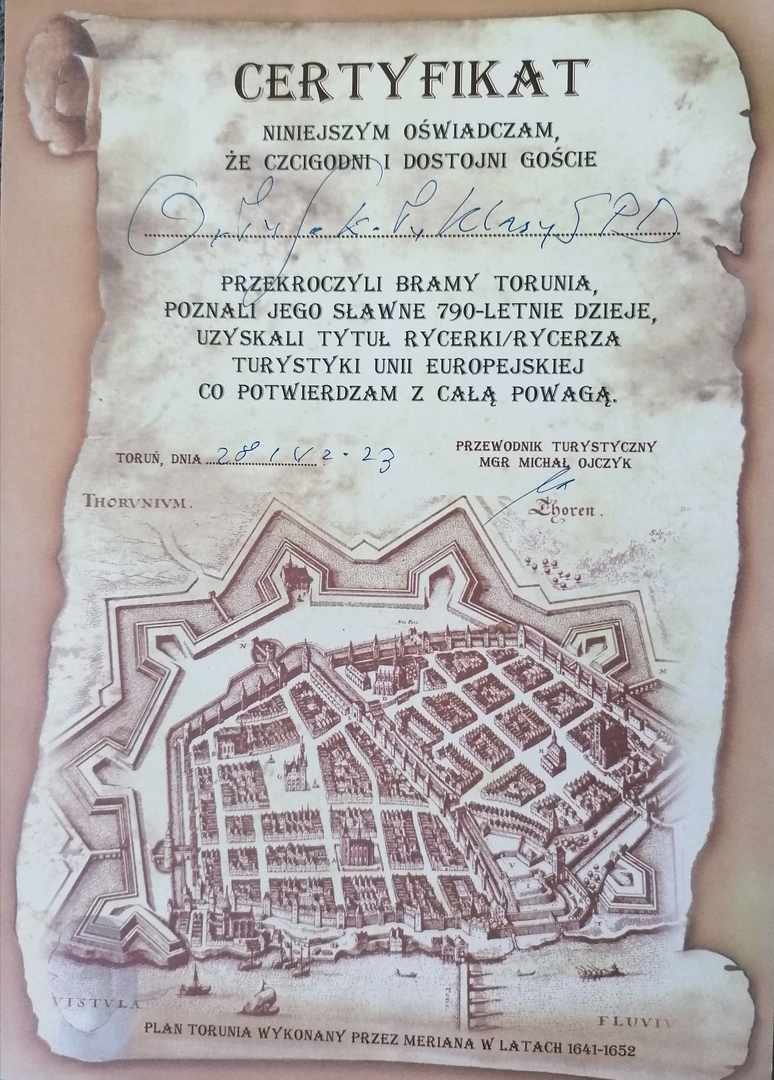 CERTYFIKAT
NINIEJSZYM OŚWIADCZAM,
ŻE CZCIGODNI I DOSTOJNI GOŚCIE
Klasy
PRZEKROCZYLI BRAMY TORUNIA,
POZNALI JEGO SŁAWNE 790-LETNIE DZIEJE,
UZYSKALI TYTUŁ RYCERKI/RYCERZA
TURYSTYKI UNII EUROPEJSKIEJ
CO POTWIERDZAM Z CAŁĄ POWAGĄ.
TORUŃ, DNIA
PRZEWODNIK TURYSTYCZNY
MGR MICHAŁ OJCZYK
THORVNIVM.
Thoren.
N
M
VISTVLA
FLUVIV
PLAN TORUNIA WYKONANY PRZEZ MERIANA W LATACH 1641-1652